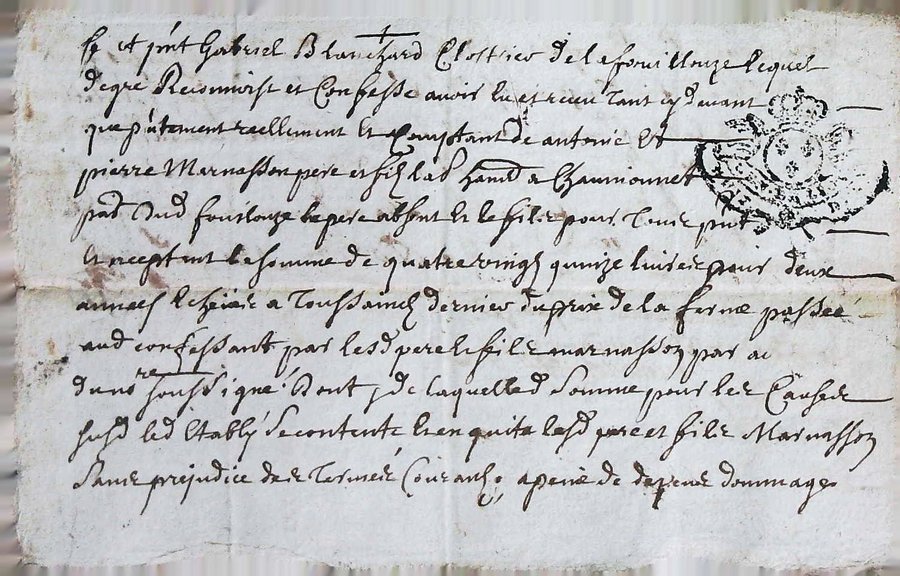 fe et pnt Gabriel Blanchard Clostrier de la fouillouze lequel
de gre Reconnoist et Confesse avoir eu et receu tant cy devant
que pntement reellement et Comptant de antoine et
pierre Marnasson pere et filz lad a Chaumonnet
par dud fouilouze le pere absent et le filz pour Tous pnt
et acceptant la somme de quatre vingt quinze livres pour deux
annees echeues a Toussainctz dernier du prix de la ferme passée
aud confessant par lesd pere et filz marnasson par
du nore soussigné Dont et de laquelle somme pour les Causes
susd led Estably se contente et en quite lesd pere et filz Marnasson
Sans prejudice des Termes Courantz a peine de depens dommages